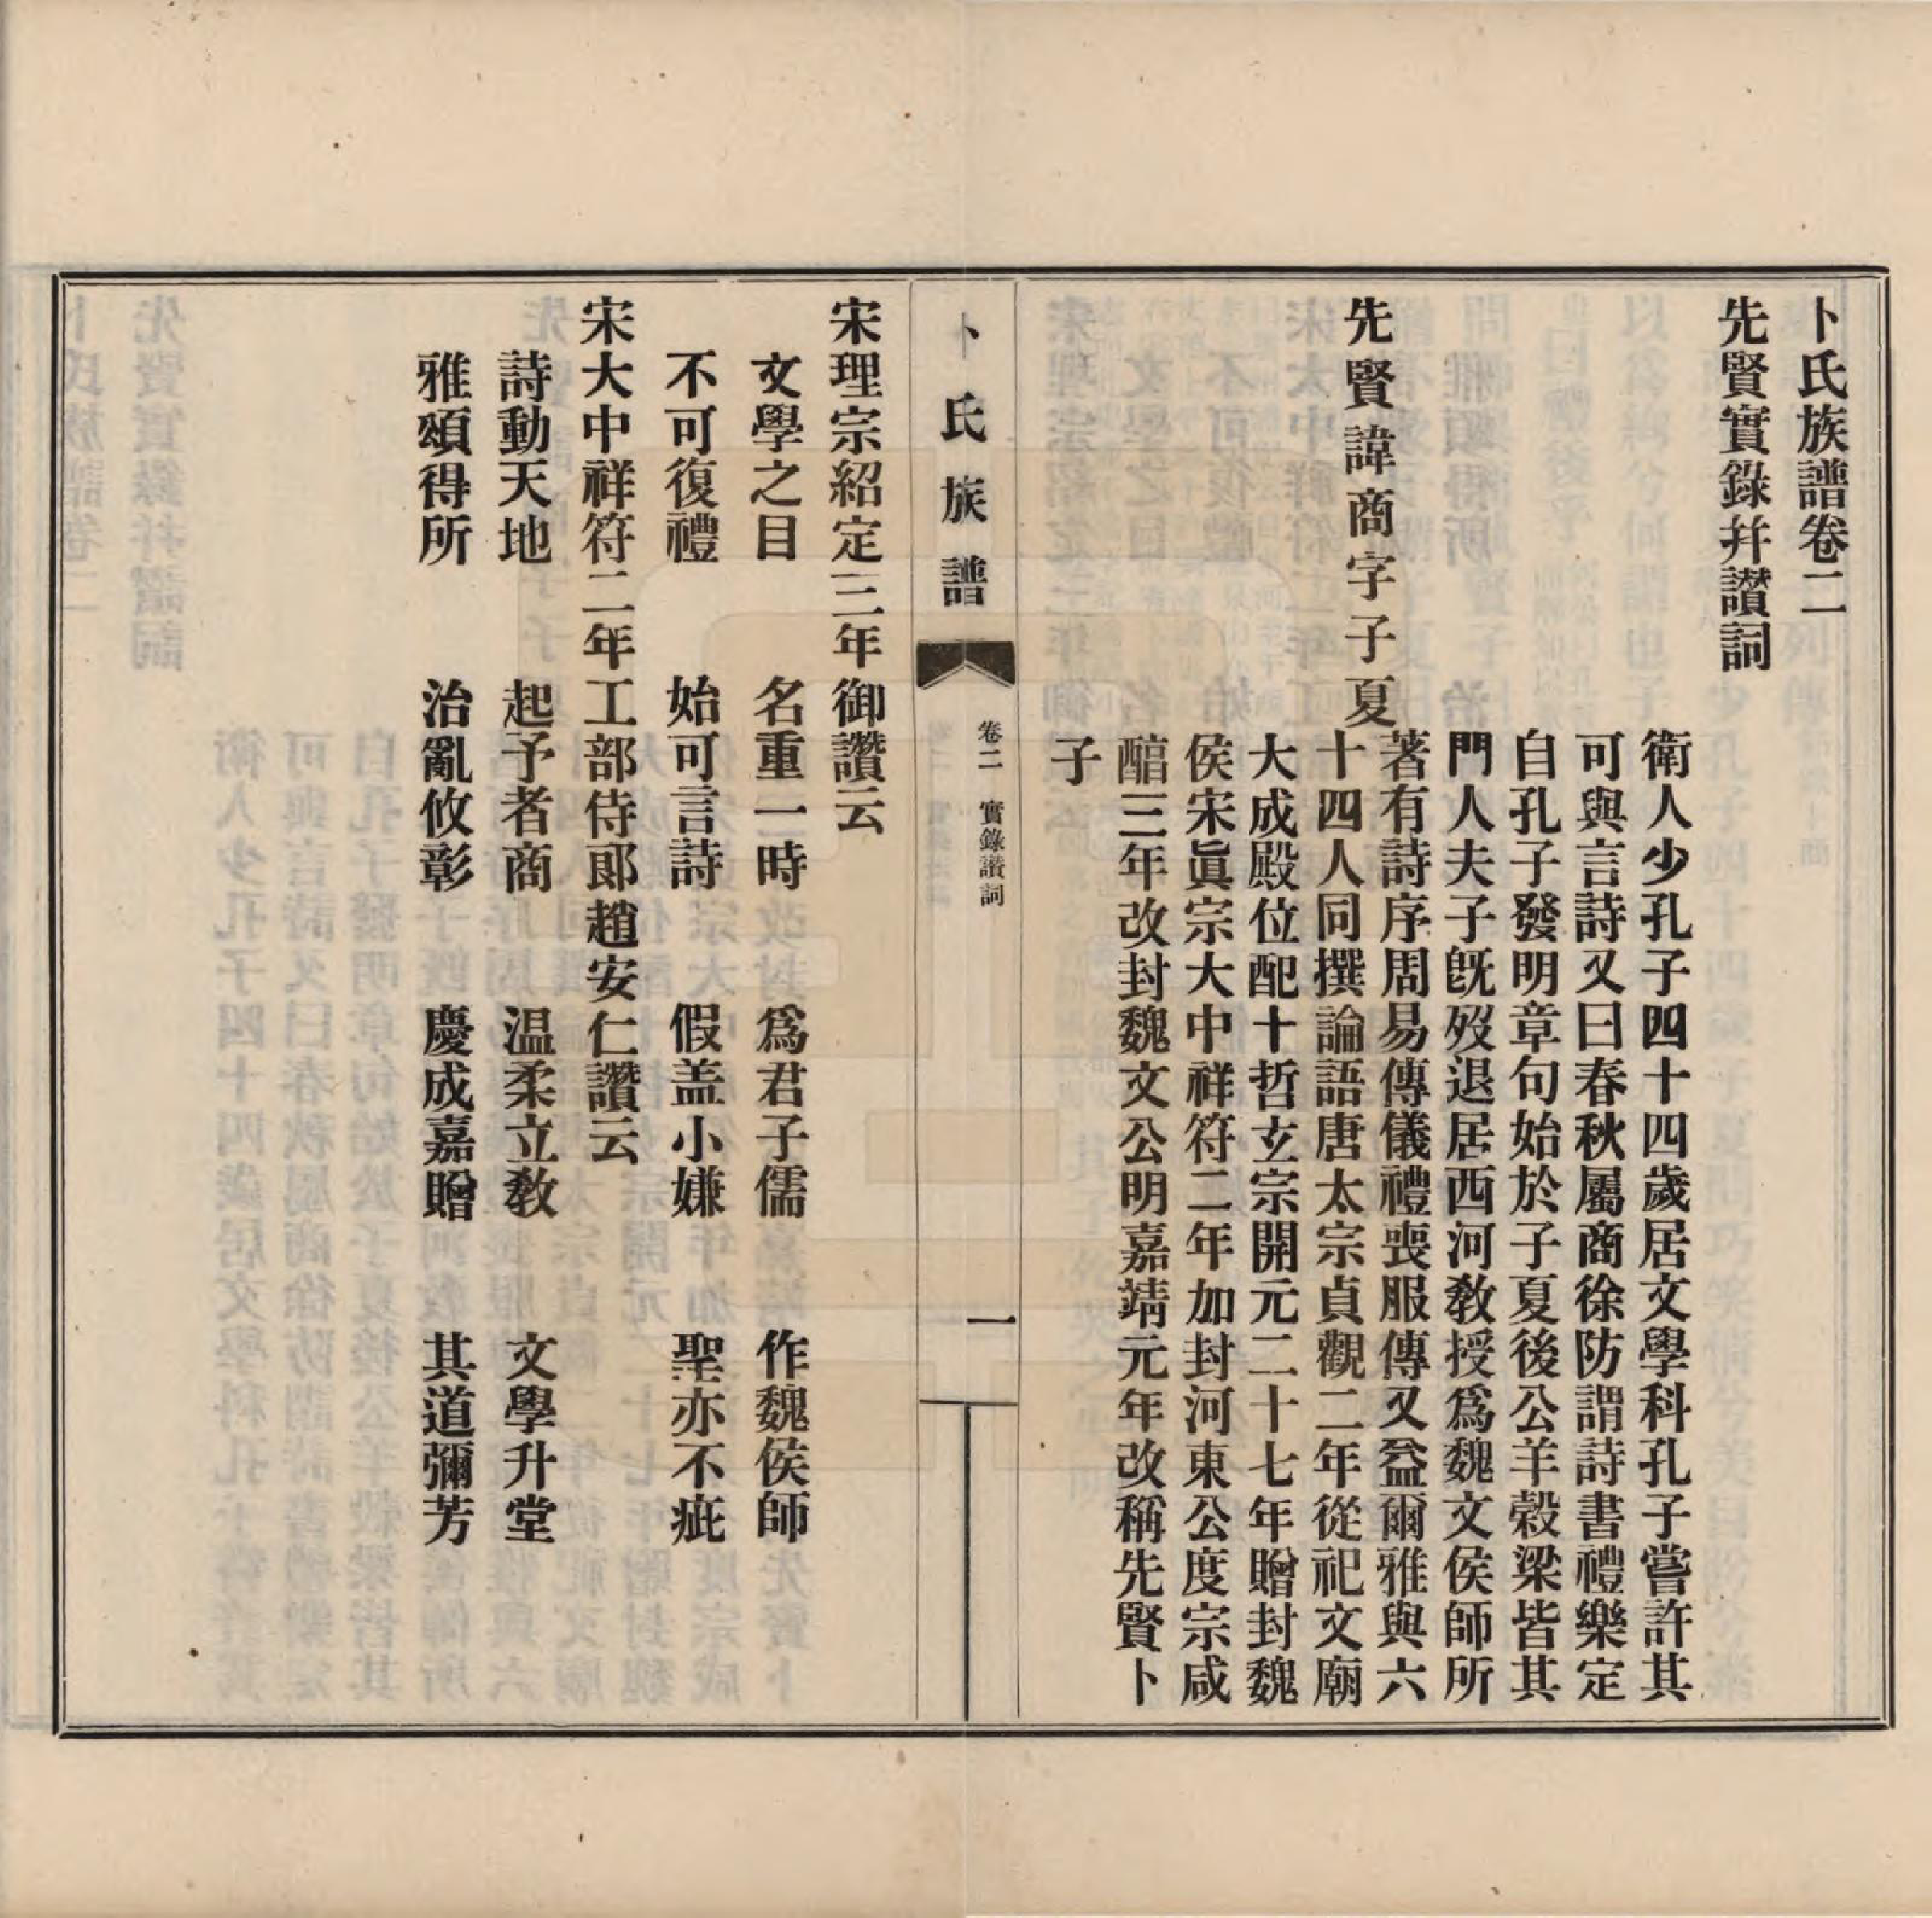 卜氏族譜卷二
先賢實錄幷讚詞
先賢諱商字子夏
衛人少孔子四十四歲居文學科孔子嘗許其
可與言詩又曰春秋屬商徐防謂詩書禮樂定
自孔子發明章句始於子夏後公羊穀梁皆其
門人夫子旣歿退居西河敎授爲魏文侯師所
著有詩序周易傳儀禮喪服傳又益爾雅與六
十四人同撰論語唐太宗貞觀二年從祀文廟
大成殿位配十哲玄宗開元二十七年贈封魏
侯宋眞宗大中祥符二年加封河東公度宗咸
醕三年改封魏文公明嘉靖元年改稱先賢卜
子
卜氏族譜
卷二 實錄讚詞
一
宋理宗紹定三年御讚云
文學之目 名重一時 爲君子儒 作魏侯師
不可復禮 始可言詩 假盖小嫌 聖亦不疵
宋大中祥符二年工部侍郎趙安仁讚云
詩動天地 起予者商 温柔立敎 文學升堂
雅頌得所 治亂攸彰 慶成嘉贈 其道彌芳